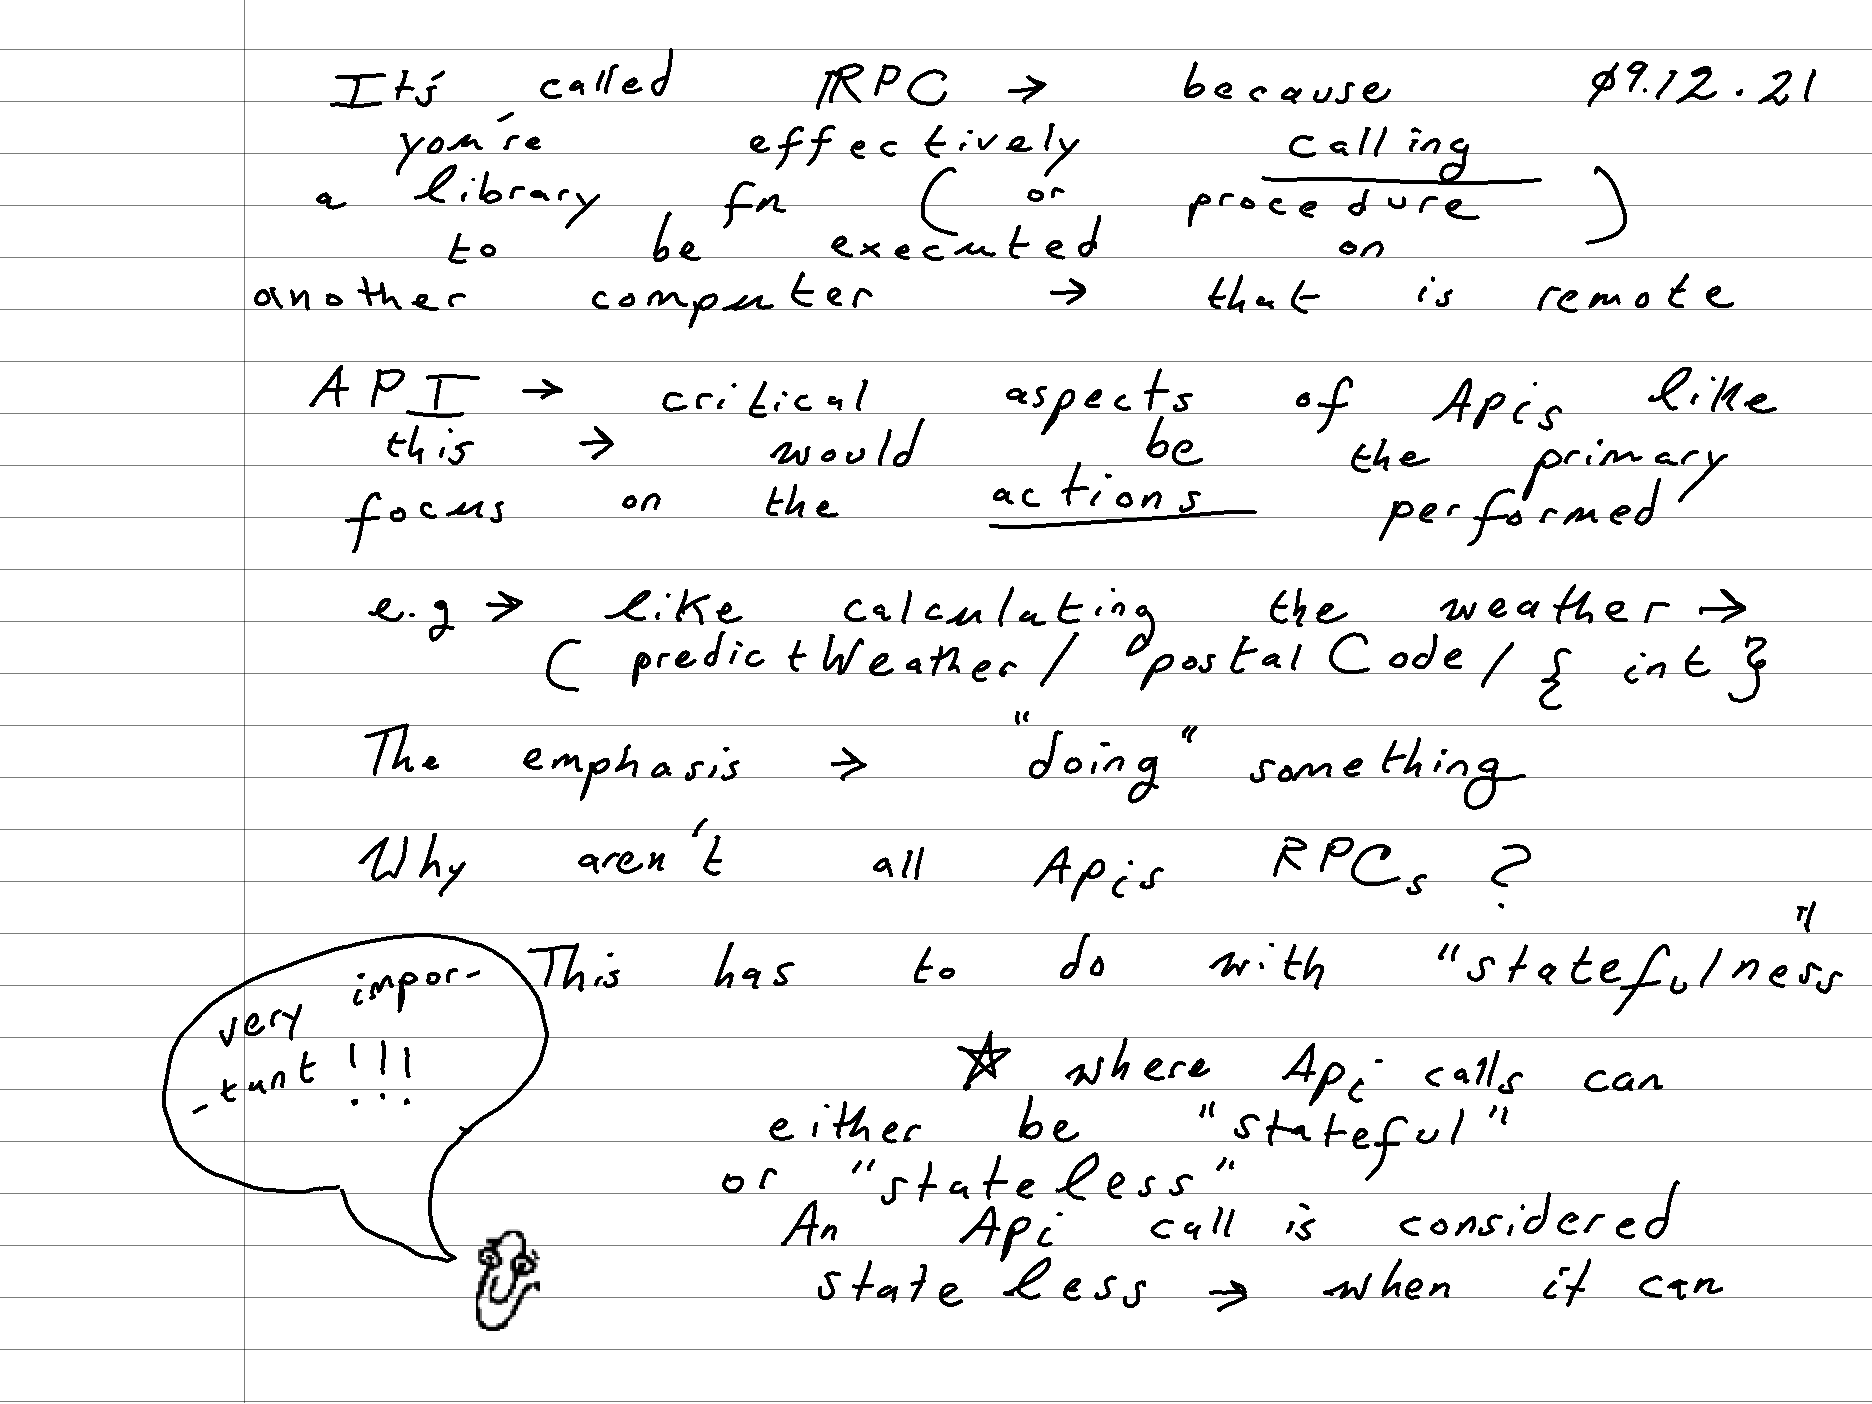 It's called RPC → because ø9.12.21
you're effectively calling
a library fn ( or procedure )
to be executed on
another computer → that is remote
API → critical aspects of Apis like
this → would be the primary
focus on the actions performed
e.g → like calculating the weather →
( predictWeather / postalCode / { int }
The emphasis → "doing" something
Why aren't all Apis RPCs ?
This has to do with "statefulness"
very impor-
-tant !!!
☆ where Api calls can
either be "stateful"
or "stateless"
An Api call is considered
stateless → when it can